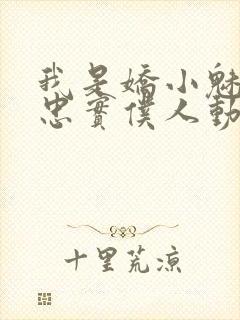 我是嬌小魅
忠實僕人動
十里荒涼